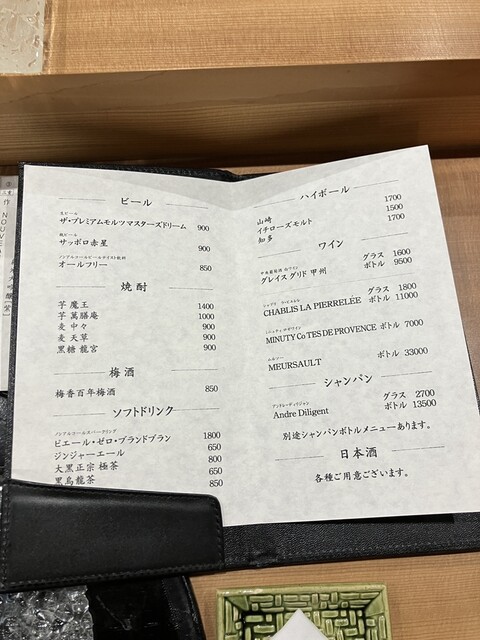 ビール
生ビール
ザ・プレミアムモルツ マスターズドリーム 900
瓶ビール
サッポロ赤星 900
ノンアルコールビールテイスト飲料
オールフリー 850
焼酎
芋 魔王 1400
芋 萬膳庵 1000
麦 中々 900
麦 天草 900
黒糖 龍宮 900
梅酒
梅香百年梅酒 850
ソフトドリンク
ノンアルコールスパークリング
ピエール・ゼロ・ブランドブラン 1800
ジンジャーエール 650
大黒正宗 極茶 800
黒烏龍茶 650
850
ハイボール
山崎 1700
イチローズモルト 1500
知多 1700
ワイン
グレイス グリド 甲州 グラス 1600
ボトル 9500
シャブリ ラ・ピエレレ
CHABLIS LA PIERRELÉE グラス 1800
ボトル 11000
MINUTY Co TES DE PROVENCE ボトル 7000
ムルソー
MEURSAULT ボトル 33000
シャンパン
アンドレ・ディリジャン
Andre Diligent グラス 2700
ボトル 13500
別途シャンパンボトルメニューあります。
日本酒
各種ご用意ございます。
作
NOUVE